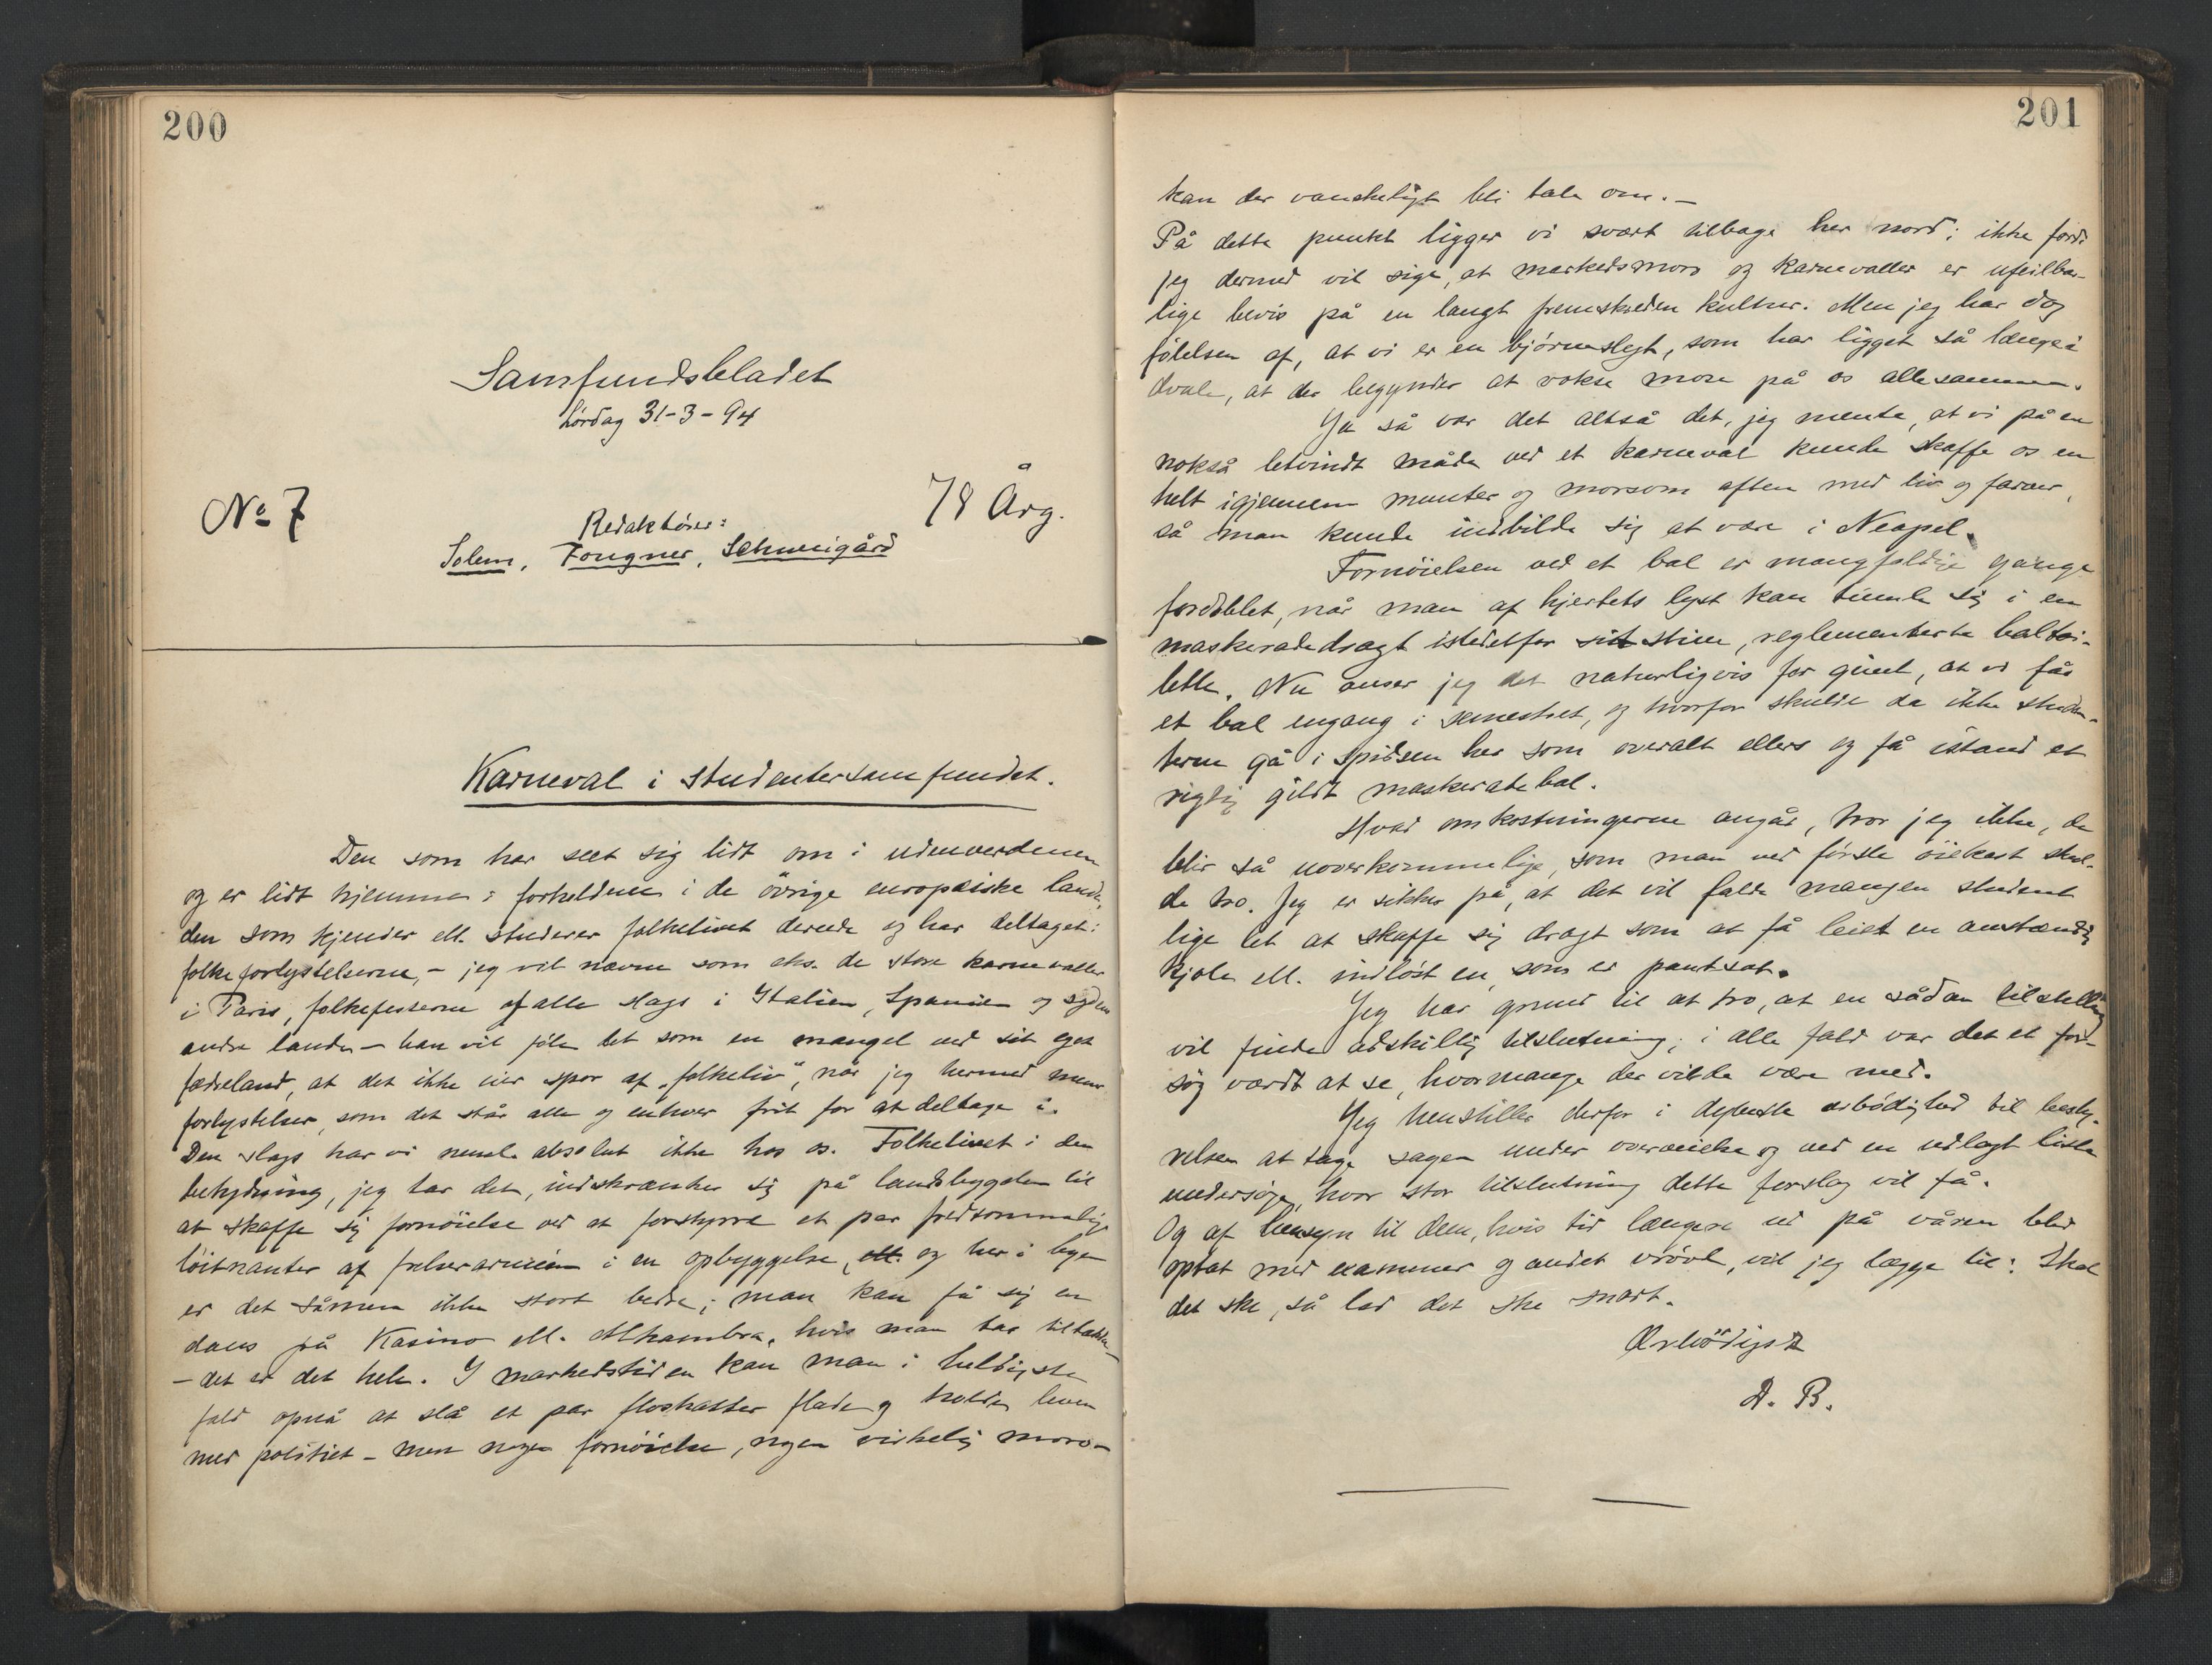 200
Samfundsbladet
Lørdag 31-3-94
No 7
78 Årg.
Redaktører:
Solem, Fougner, Schweigård
Karneval i studentersamfundet.
Den som har seet sig lidt om i udenverdenen
og er lidt hjemme i forholdene i de övrige europæiske lande,
den som kjender ell. studerer folkelivet derude og har deltaget i
folkeforlystelserne, – jeg vil nævne som eks. de store karnevaller
i Paris, folkefesterne af alle slags i Italien, Spanien og sydens
andre lande – han vil føle det som en mangel ved sit eget
fædreland, at det ikke eier spor af „folkeliv", når jeg hermed mener
forlystelser, som det står alle og enhver frit for at deltage i.
Den slags har vi nemlig absolut ikke hos os. Folkelivet i den
betydning, jeg tar det, indskrænker sig på landsbygden til
at skaffe sig fornöielse ved at forstyrre et par fredsommelige
löitnanter af frelserarmeen i en opbyggelse, ell. og her i byen
er det såmen ikke stort bedre; man kan få sig en
dans på Kasino ell. Alhambra, hvis man tar tiltakke
– det er det hele. I markedstiden kan man i heldigste
fald opnå at slå et par floshatter flade og holde leven
med politiet – men nogen fornöielse, nogen virkelig moro –
201
kan der vanskeligt bli tale om. –
På dette punkt ligger vi svært tilbage her nord; ikke fordi
jeg dermed vil sige, at markedsmoro og karnevaller er ufeilbar-
lige bevis på en langt fremskreden kultur. Men jeg har dog
følelsen af, at vi er en bjørneslegt, som har ligget så længe i
dvale, at der begynder at vokse mose på os allesammen.
Ja så var det altså det, jeg mente, at vi på en
nokså letvindt måde ved et karneval kunde skaffe os en
helt igjennem munter og morsom aften med liv og farver,
så man kunde indbilde sig at være i Neapel.
Fornöielsen ved et bal er mangfoldige gange
fordoblet, når man af hjertets lyst kan tumle sig i en
maskeradedragt istedetfor sit stive, reglementerte baltoi-
lette. Nu anser jeg det naturligvis for givet, at vi får
et bal engang i semestret, og hvorfor skulde da ikke studen-
terne gå i spidsen her som overalt ellers og få istand et
rigtig gildt maskeradebal.
Hvad omkostningerne angår, tror jeg ikke, de
blir så uoverkommelige, som man ved første öiekast skul-
de tro. Jeg er sikker på, at det vil falde mangen student
lige let at skaffe sig dragt som at få leiet en anstændig
kjole ell. indlöst en, som er pantsat.
Jeg har grund til at tro, at en sådan tilstelling
vil finde adskillig tilslutning; i alle fald var det et for-
søg værdt at se, hvormange der vilde være med.
Jeg henstiller derfor i dybeste ærbödighed til besty-
relsen at tage sagen under overveielse og ved en udlagt liste
undersöge, hvor stor tilslutning dette forslag vil få.
Og af hensyn til dem, hvis tid længere ud på våren blir
optat med examener og andet vrövl, vil jeg lægge til: Skal
det ske, så lad det ske snart.
Ærbödigst
A. B.